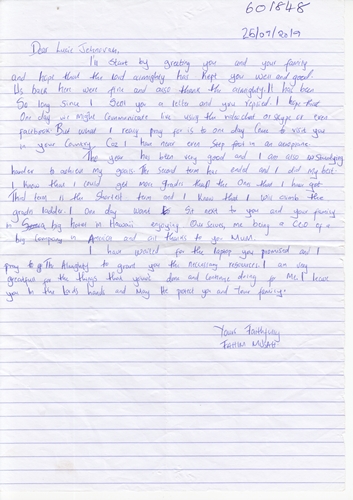 601848
25/07/2019
Dear Lucie
I'll start by greeting you and your family
and hope that the lord almighty has kept you well and good
Us back here were fine and also thank the almighty. It has been
So long since I Sent you a letter and you replied I hope that
One day we might Communicate live using the videochat or skype or even
Facebook. But what I really pray for is to one day Come to visit you
in your Country Coz I have never even Step foot in an aeroplane.
The year has been very good and I am also Studying
harder to achieve my goals. The Second term has ended and I did my best
I know that I could get more grades than the One that I have got
This term is the Shortest term and I know that I will climb the
grades ladder. One day want to Sit next to you and your family
in big house in Hawaii enjoying Our selves, me being a C.E.O of a
big Company in and all thanks to you Mum.
I have waited for the laptop you promised and I
pray to The Almighty to grant you the necessary resources. I am very
grateful for the things that you've done and continue doing for Me. I leave
you in the lords hands and May He protect you and Your family.
Yours Faithfully
FAHIM